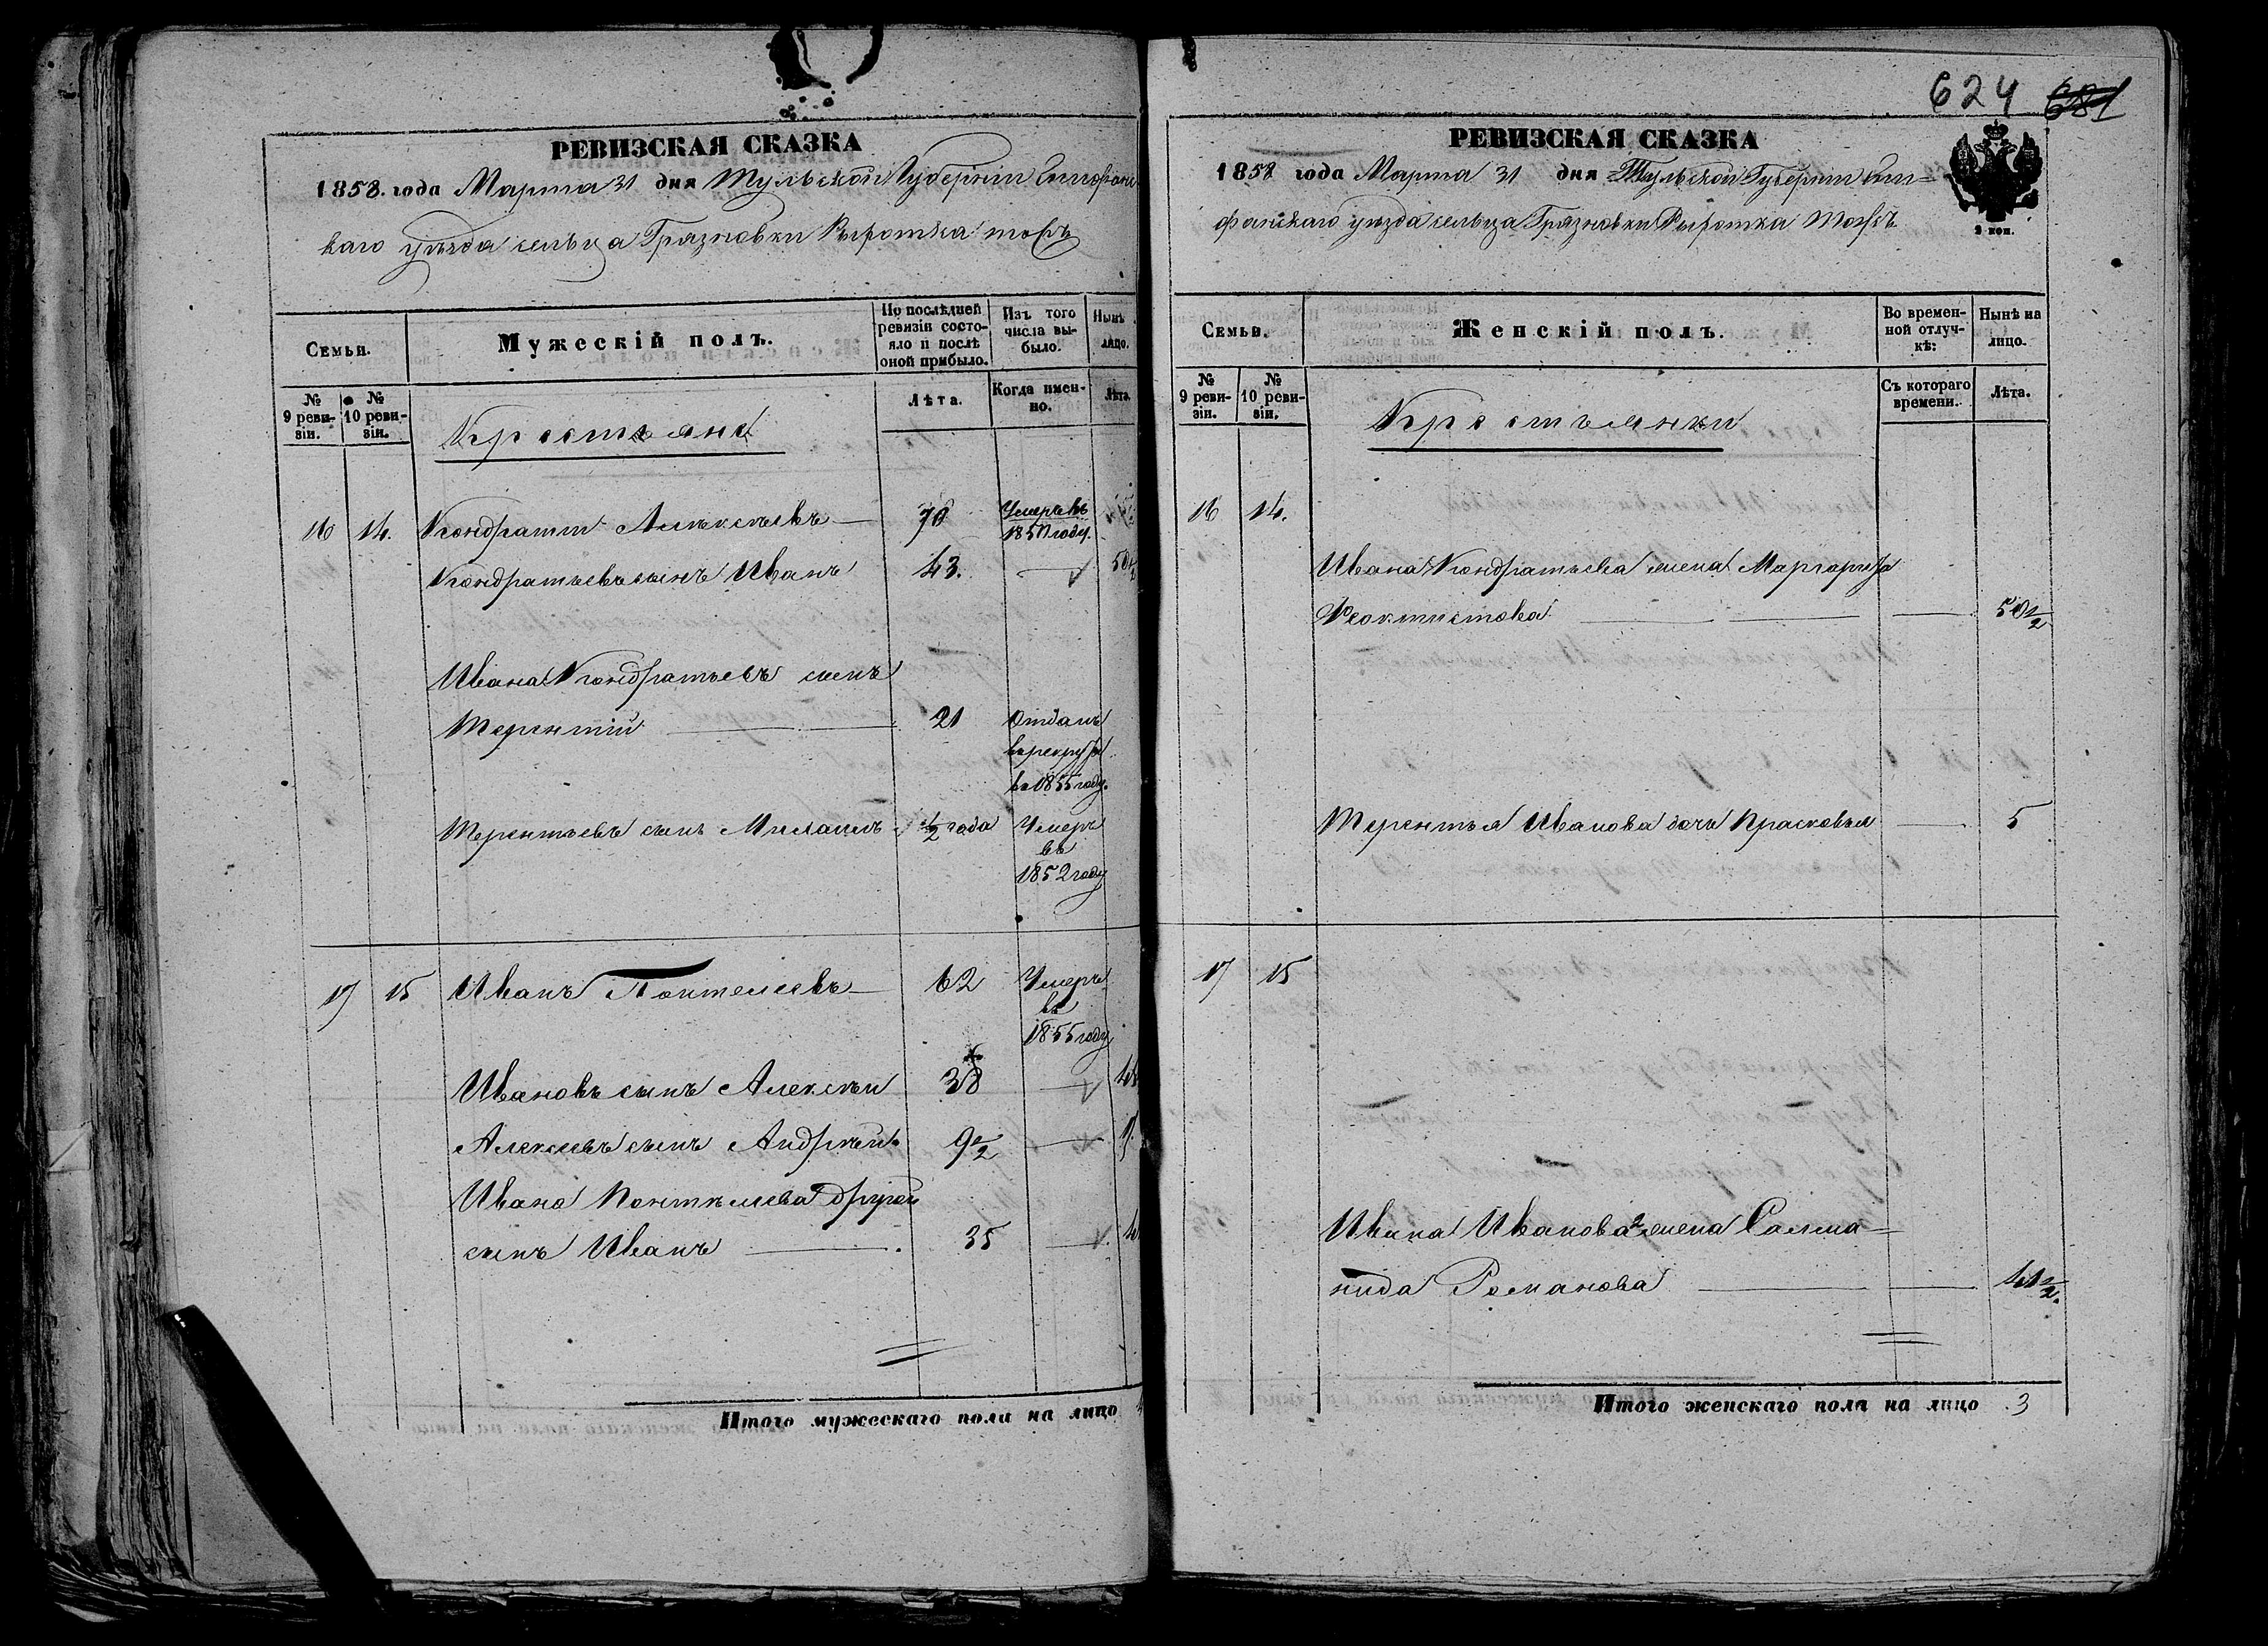 РЕВИЗСКАЯ СКАЗКА
1858. года Марта 31 дня Тульской Губернiи Епифанс
каго уѣзда сельца Грязновки Сыротка тожъ
Семьи.
№ 9 реви-зiи.
№ 10 реви-зiи.
Мужескiй полъ.
По послѣдней
ревизiи состо-
яло и послѣ
оной прибыло.
Изъ того
числа вы-
было.
Нынѣ
лицо.
Лѣта.
Когда имен-
но.
Лѣта.
Крестьяне
16 14. Кондратiй Алексѣевъ 70 Умеръ въ
1850 году.
Кондратьевъ сынъ Иванъ 43. 50½
Ивана Кондратьевъ сынъ
Терентiй 21 Отданъ
въ рекруты
въ 1855 году.
Терентьевъ сынъ Михаилъ ½ года Умеръ
въ
1852 году
17 15 Иванъ Понтелеевъ 62 Умеръ
въ
1855 году
Ивановъ сынъ Алексѣй 38
Алексѣевъ сынъ Андрѣй 9½
Ивана Понтелеева другой
сынъ Иванъ 35
Итого мужескаго пола на лицо
624 681
РЕВИЗСКАЯ СКАЗКА
1858 года Марта 31 дня Тульской Губернiи Епи=
фанскаго уѣзда сельца Грязновки Сыротка тожъ
9 коп.
Семьи.
№ 9 реви-зiи.
№ 10 реви-зiи.
Женскiй полъ.
Во времен-
ной отлуч-
кѣ:
Нынѣ на
лицо.
Съ котораго
времени.
Лѣта.
Крестьянки
16 14.
Ивана Кондратьева жена Маргарита
Феоктистова 50½
Терентья Иванова дочь Прасковья 5
17 15
Ивана Иванова жена Соломо=
нида Романова 41½.
Итого женскаго пола на лицо 3